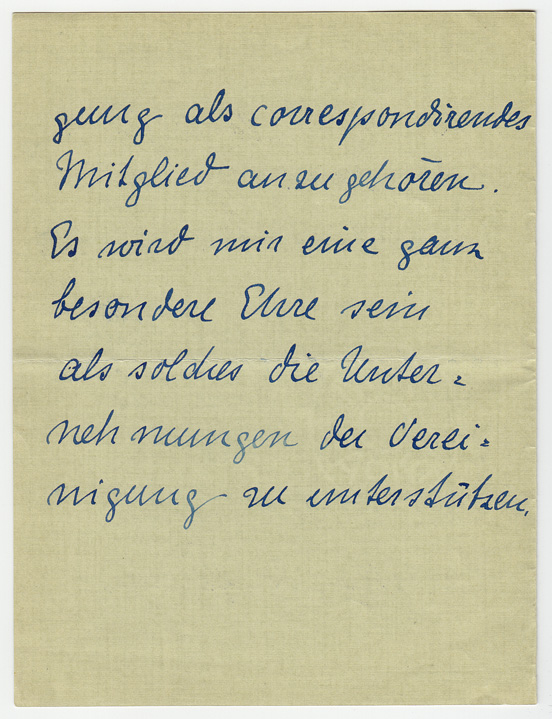 gung als correspondirendes
Mitglied anzugehören.
Es wird mir eine ganz
besondere Ehre sein
als solches die Unter=
nehmungen der Verei=
nigung zu unterstützen.